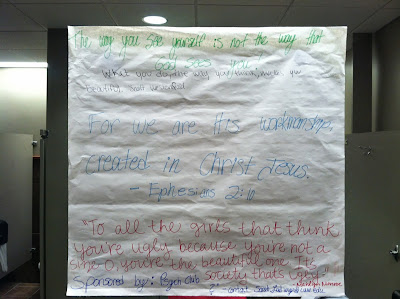 The way you see yourself is not the way that
God sees you!
What you the way you make you
beautiful and wonderful
For we are His workmanship,
created in Christ Jesus.
- Ephesians 2:10
"To all the girls that think
you're ugly because you're not a
size 0, you're the beautiful one. It's
society that's ugly."
Sponsored by: Psych club